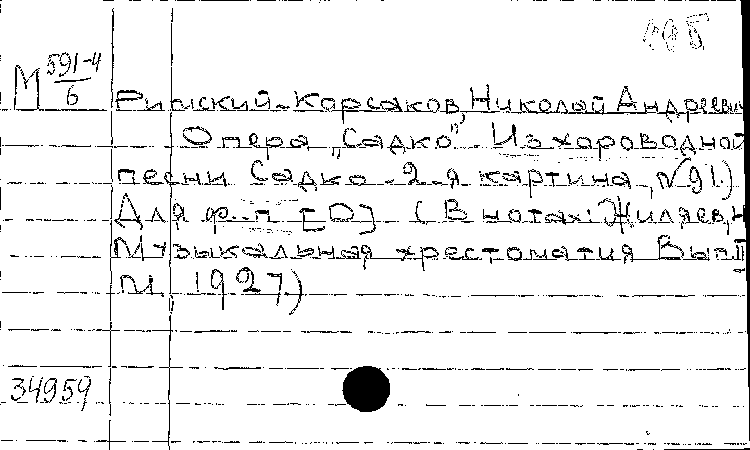 М 591-4/6
Римский-Корсаков, Николай Андреевич
Опера „Садко". Из хороводной
песни Садко - 2-я картина, №91.)
Для ф.-п. [О] (В нотах: Жиляев, Н
Музыкальная хрестоматия Вып. II
М. 1927.)
34959